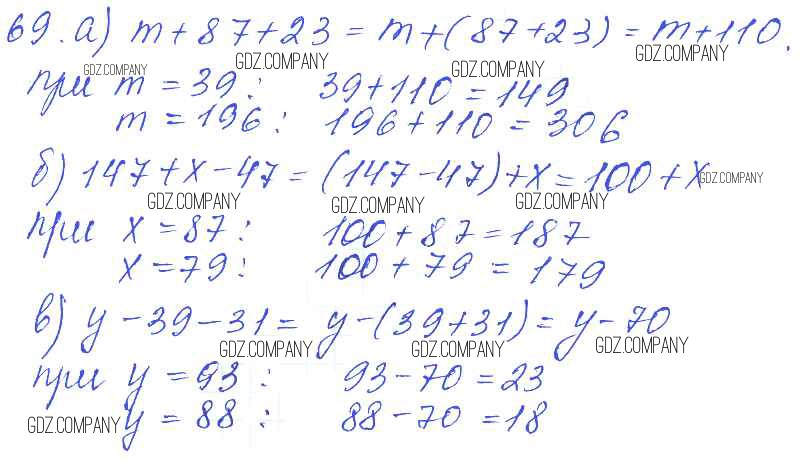 69. а) m + 87 + 23 = m + (87 + 23) = m + 110,
GDZ.COMPANY GDZ.COMPANY GDZ.COMPANY GDZ.COMPANY
при m = 39 : 39 + 110 = 149
m = 196 : 196 + 110 = 306
б) 147 + x - 47 = (147 - 47) + x = 100 + x GDZ.COMPANY
GDZ.COMPANY GDZ.COMPANY GDZ.COMPANY
при x = 87 : 100 + 87 = 187
x = 79 : 100 + 79 = 179
в) y - 39 - 31 = y - (39 + 31) = y - 70
GDZ.COMPANY GDZ.COMPANY GDZ.COMPANY
при y = 93 : 93 - 70 = 23
GDZ.COMPANY y = 88 : 88 - 70 = 18